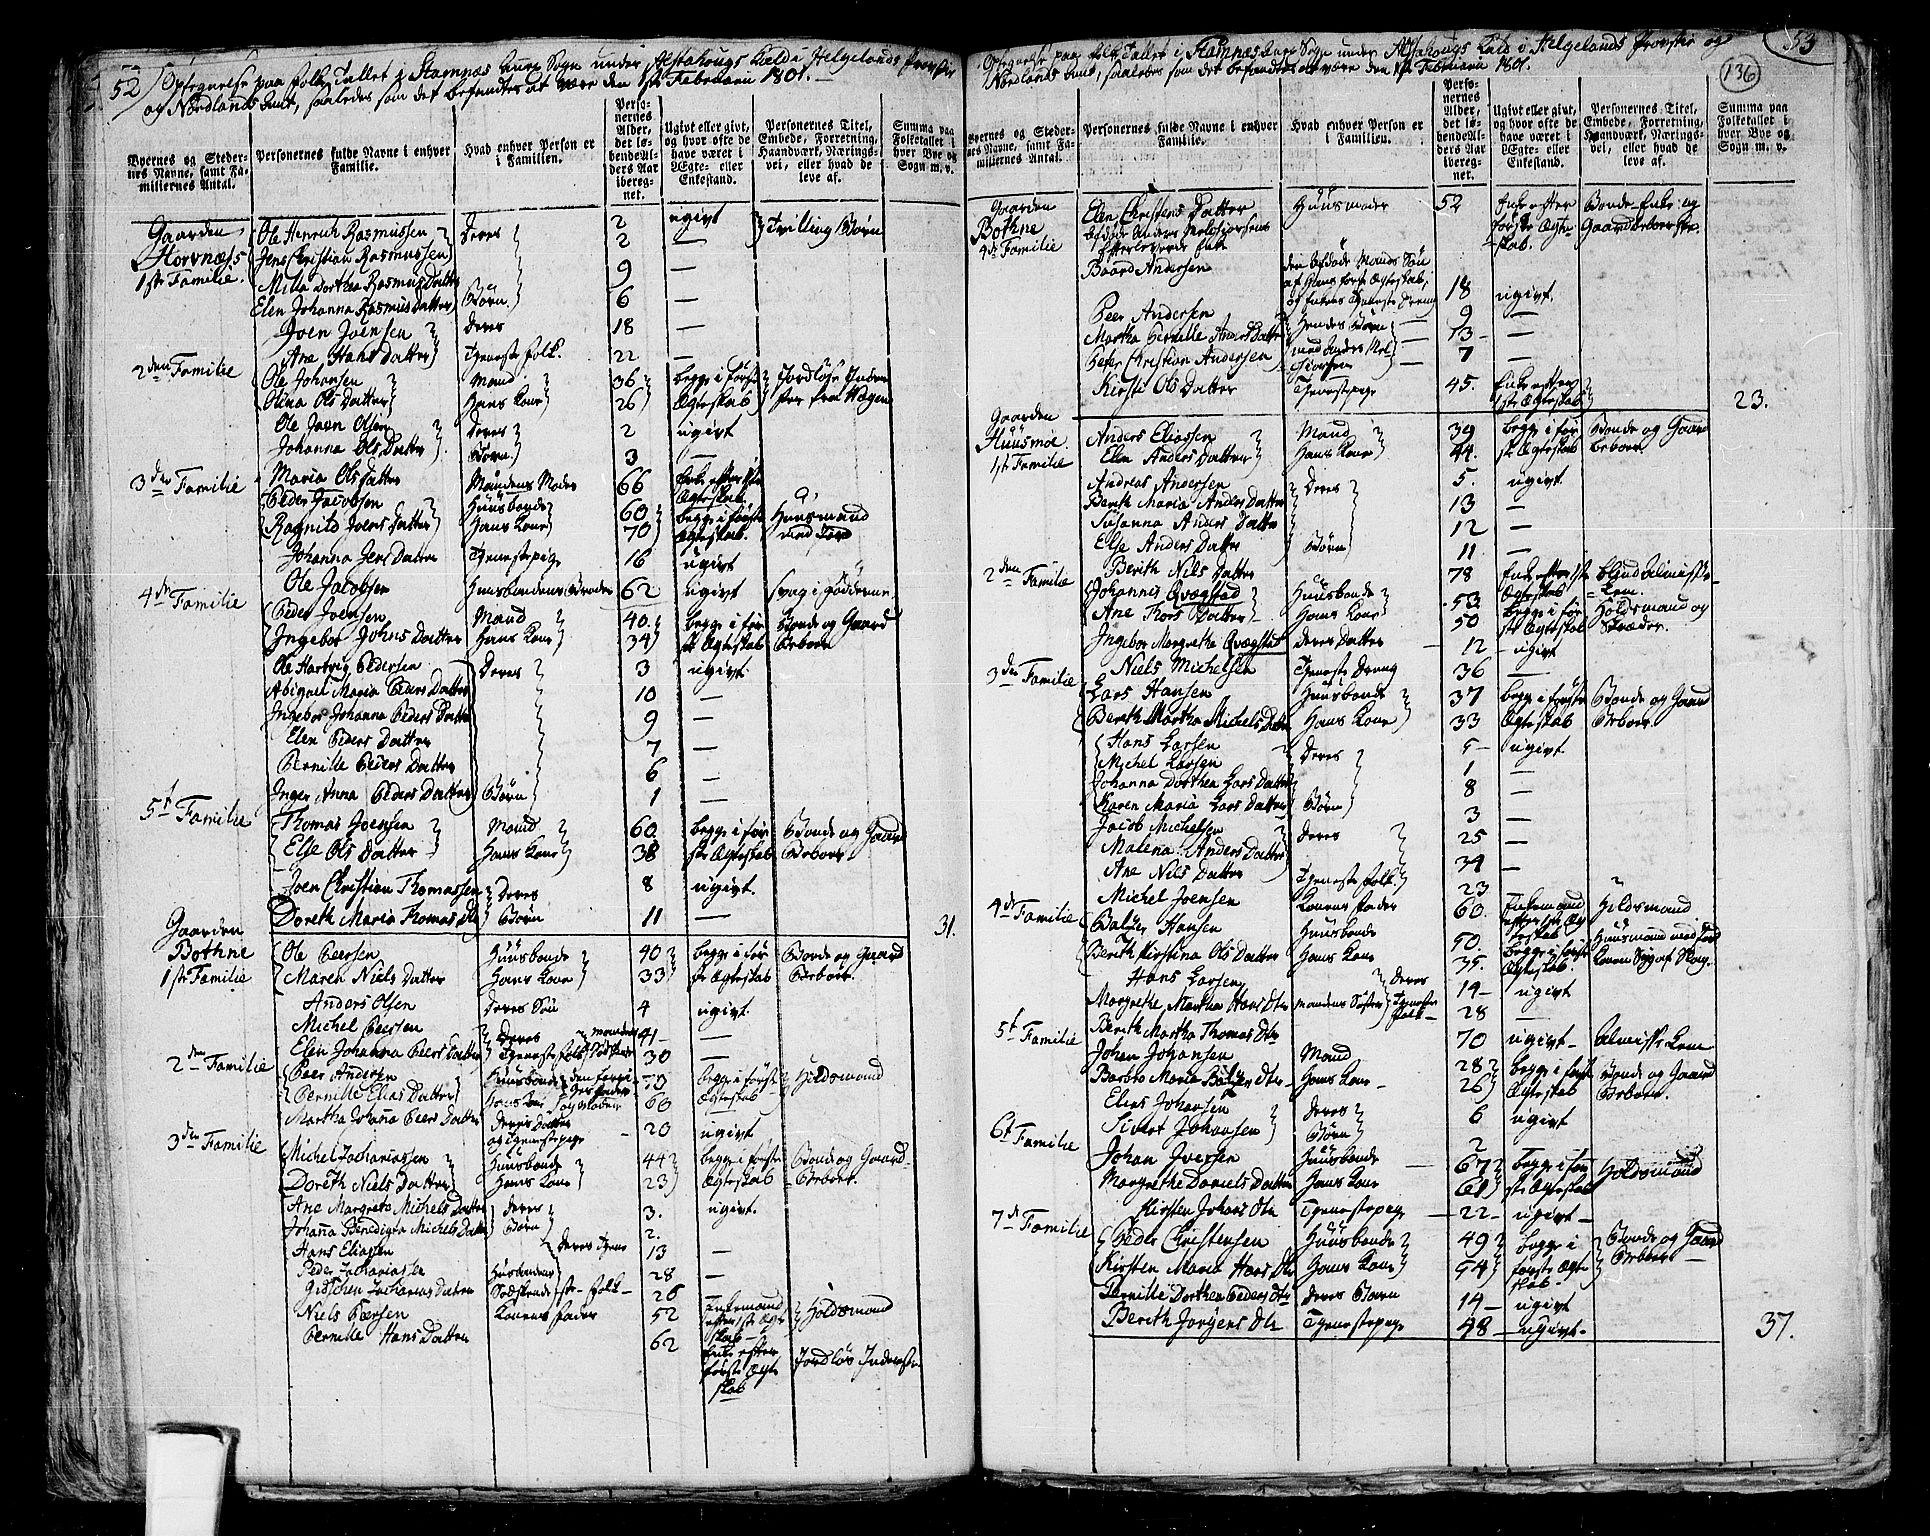 52
Optegnelse paa Folke Tallet i Stamnæs Annex Sogn under Alstahougs Kald i Helgelands Provstie
og Nordlands Amt, saaledes som det befandtes at være den 1ste Februarii 1801.
Byernes og Stedernes Navne, samt Familiernes Antal.
Personernes fulde Navne i enhver Familie.
Hvad enhver Person er i Familien.
Personernes Alder, det løbende Alders Aar iberegnet.
Ugivt eller givt, og hvor ofte de have været i Ægte- eller Enkestand.
Personernes Titel, Embede, Forretning, Haandværk, Næringsvei, eller hvad de leve af.
Summa paa Folketallet i hver Bye og Sogn m. v.
Gaarden Ole Henrich Rasmussen Deres 2 ugivt Tvilling Børn
Horvnæss Jens Christian Rasmussen 2 —
1ste Familie Milla Dorthea Rasmus Datter 9 —
Elen Johanna Rasmus Datter Børn. 6 —
Joen Joensen deres 18 —
Ane Hans Datter Tjeneste folk. 22 —
2den Familie Ole Johansen Mand 36 begge i første Jordløse Inder
Olina Ols Datter Hans Kone 26 Ægteskab
Ole Joen Olsen Deres 2 ugivt
Johanna Ols Datter Børn 3 —
Maria Olsdatter Mandens Moder 66 Enke efter 1ste Ægteskab.
3die Familie Peder Jacobsen Huusbonde 60 begge i første Huusmand
Ragnild Joens Datter Hans Kone 70 Ægteskab. med Jord
Johanna Jens Datter Tjenestepige 16 ugivt
Ole Jacobsen Huusbondens Broder 62 ugivt Svag i Fødderne.
4de Familie Peder Joensen Mand 40. begge i før Bonde og Gaard
Ingebor Johns Datter Hans Kone 34 ste Ægteskab Beboer
Ole Hartvig Pedersen Deres 3 ugivt
Abigael Maria Peders Datter 10 —
Ingebor Johanna Peders Datter 9 —
Elen Peders Datter 7 —
Pernille Peders Datter 6 —
Inger Anna Peders Datter Børn 1 —
5te Familie Thomas Joensen Mand 60 begge i før Bonde og Gaard
Else Ols Datter Hans Kone 38 ste Ægteskab Beboer
Joen Christian Thomassen Deres 8 ugivt.
Doreth Maria Thomas Dtr Børn 11 — 31.
Gaarden
Bothne Ole Peersen Huusbonde 40 begge i før Bonde og Gaard
1ste Familie Maren Niels Datter Hans Kone 33 ste Ægteskab Beboer.
Anders Olsen Deres Søn 4 ugivt.
Michel Peersen Deres 41 —
Elen Johanna Peers Datter Tjeneste folk 30 —
2den Familie Peer Andersen Huusbonde 70 begge i første Holdsmand
Pernille Elias Datter Hans Kone 60 Ægteskab
Martha Johanna Peers Datter Deres Datter og Tjenestepige 20 ugivt
3die Familie Michel Zachariassen Huusbonde 44 begge i første Bonde og Gaard
Doreth Niels Datter Hans Kone 23 Ægteskab Beboer.
Ane Margrete Michels Datter deres 3. ugivt.
Johanna Benedigta Michels Datter Børn 2.
Hans Eliassen deres Tjene 13 —
Peder Zachariassen Huusbondens 28 —
Gidschen Zacharias Datter Sødskende ste folk 26 —
Niels Peersen Konens fader 52 Enkemand efter 1ste Ægteskab Holdsmand
Pernille Hans Datter 62 Enke efter første Ægteskab Jordløs Inderste
53
136
Optegnelse paa Folke Tallet i Stamnes Annex Sogn under Alstahougs Kald i Helgelands Provstie og
Nordlands Amt, saaledes som det befandtes at være den 1ste Februarii 1801.
Byernes og Stedernes Navne, samt Familiernes Antal.
Personernes fulde Navne i enhver Familie.
Hvad enhver Person er i Familien.
Personernes Alder, det løbende Alders Aar iberegnet.
Ugivt eller givt, og hvor ofte de have været i Ægte- eller Enkestand.
Personernes Titel, Embede, Forretning, Haandværk, Næringsvei, eller hvad de leve af.
Summa paa Folketallet i hver Bye og Sogn m. v.
Gaarden Elen Christens Datter Huusmoder 52 Enke efter Bonde Enke og
Bothne afdøde Anders Efterleverske Enke første Ægteskab. Gaardbeboerske
4de Familie Baard Andersen den afdøde Mands Søn af Hans første Ægteskab, og Enkens Tjeneste Dreng 18 ugivt.
Peer Andersen 9 —
Martha Pernille Anders Datter Hendes Børn 13 —
Peter Christian Andersen med Anders 7 —
Kirste Ols Datter Tjenestepige 45. Enke efter 1ste Ægteskab 23.
Gaarden
Huusmøe Anders Eliassen Mand 39 begge i før Bonde og Gaard
1ste Familie Elen Anders Datter Hans Kone 44. ste Ægteskab beboer.
Andreas Andersen Deres 5. ugivt
Bereth Maria Anders Datter 13 —
Susanna Anders Datter 12 —
Else Anders Datter Børn 11 —
Berith Niels Datter 78 Enke efter 1ste Ægteskab blind Almisse Lem.
2den Familie Johannes Qvægstad Huusbonde 53 begge i før Holdsmand og
Ane Thors Datter Hans Kone 50 ste Ægteskab Skræder.
Ingebor Margrethe Qvægstad deres Datter 12 ugivt
Niels Michelsen Tjeneste Dreng 36 —
3die Familie Lars Hansen Huusbonde 37 begge i første Bonde og Gaard
Bereth Martha Michels Datter Hans Kone 33 Ægteskab Beboer
Hans Larsen Deres 5 ugivt
Michel Larsen 1 —
Johanna Dorthea Lars Datter 8 —
Karen Maria Lars Datter Børn 3 —
Jacob Michelsen deres 25 —
Malena Anders Datter 34 —
Ane Niels Datter Tjeneste folk. 23 —
Michel Joensen Konens fader 60. Enkemand efter 1ste Ægteskab Holdsmand
4de Familie Balzer Hansen Huusbonde 50. begge i første Huusmand med Jord
Berith Kirstina Ols Datter Hans Kone 35. Ægteskab.
Hans Larsen deres 14 ugivt
Margrethe Martha Hans Dtr mandens Søster Tjeneste folk 28 —
Berith Martha Thomas Dtr 70 ugivt Almisse Lem
5te Familie Johan Johansen Mand 28 begge i første Bonde og Gaard
Barbro Maria Balzer Dtr Hans Kone 26 Ægteskab Beboer.
Elias Johansen deres 6 ugivt
Sivert Johansen Børn 2
6te Familie Johan Iversen Huusbonde 67 begge i før Holdsmand
Margrethe Daniels Datter Hans Kone 61 ste Ægteskab
Kirsten Johans Dtr Tjenestepige 22 ugivt
7de Familie Peder Christensen Huusbonde 49 begge i Bonde og Gaard
Kirsten Maria Hans Dtr Hans Kone 54 første Ægteskab Beboer
Pernille Dorthea Peders Dtr deres Barn 14 ugivt
Berith Jørgens Dtr Tjenestepige 48 ugivt. 37.